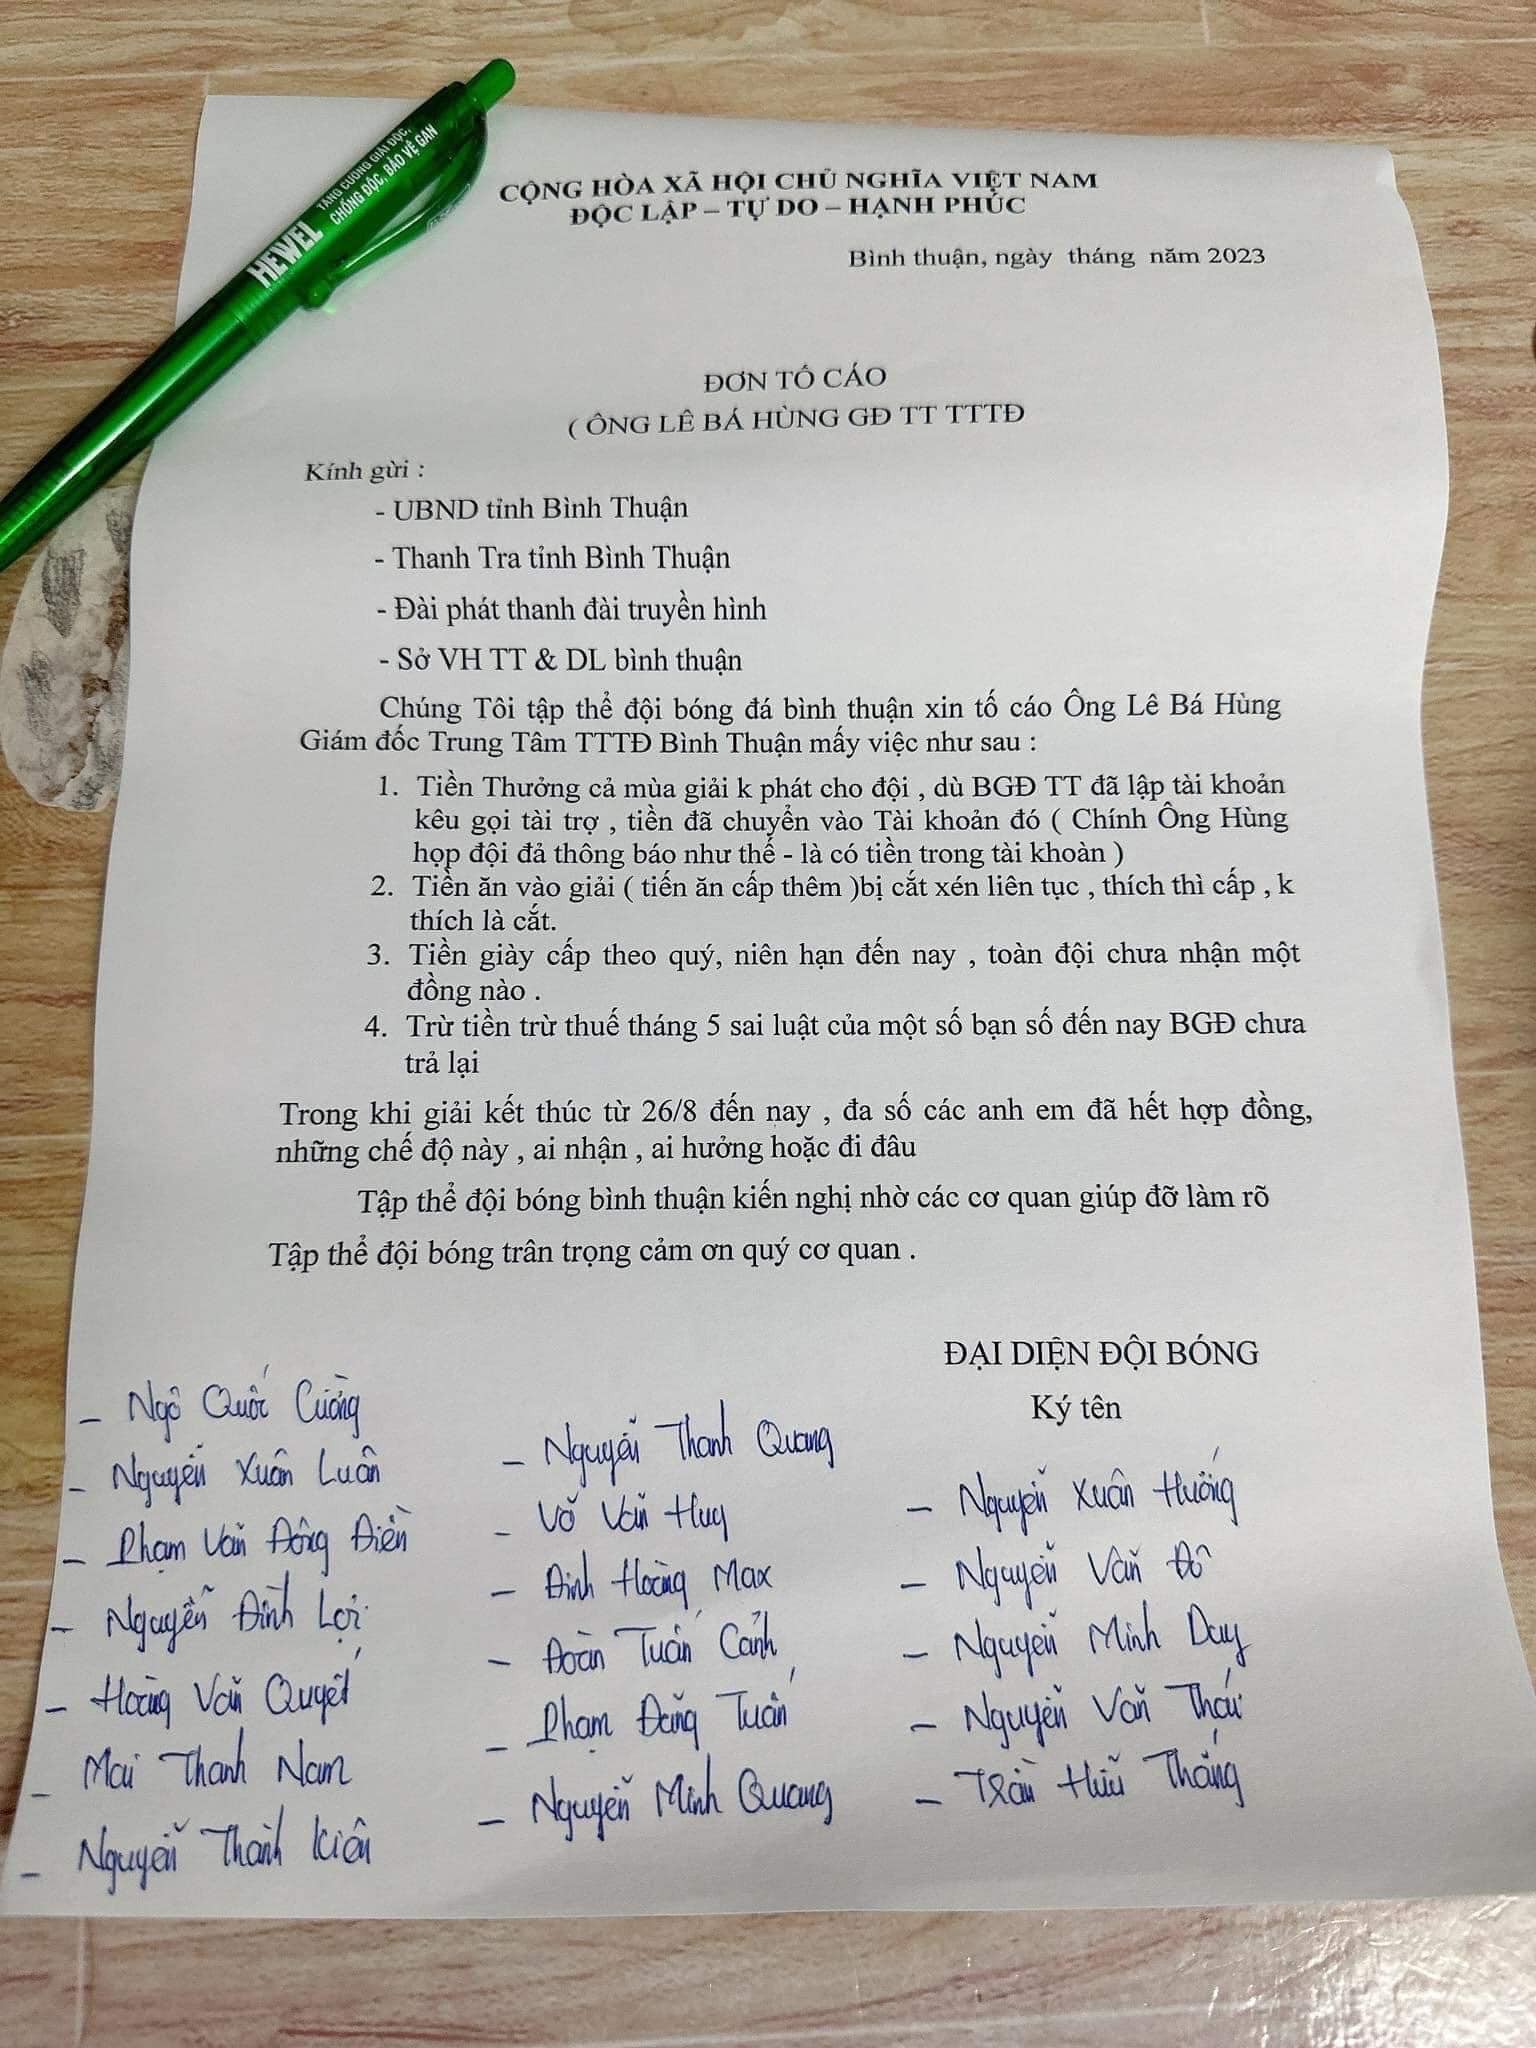 HEWEL TĂNG CƯỜNG GIẢI ĐỘC,
CHỐNG ĐỘC, BẢO VỆ GAN
CỘNG HÒA XÃ HỘI CHỦ NGHĨA VIỆT NAM
ĐỘC LẬP – TỰ DO – HẠNH PHÚC
Bình thuận, ngày tháng năm 2023
ĐƠN TỐ CÁO
( ÔNG LÊ BÁ HÙNG GĐ TT TTTĐ
Kính gửi :
- UBND tỉnh Bình Thuận
- Thanh Tra tỉnh Bình Thuận
- Đài phát thanh đài truyền hình
- Sở VH TT & DL bình thuận
Chúng Tôi tập thể đội bóng đá bình thuận xin tố cáo Ông Lê Bá Hùng
Giám đốc Trung Tâm TTTĐ Bình Thuận mấy việc như sau :
1. Tiền Thưởng cả mùa giải k phát cho đội , dù BGĐ TT đã lập tài khoản
kêu gọi tài trợ , tiền đã chuyển vào Tài khoản đó ( Chính Ông Hùng
họp đội đả thông báo như thế - là có tiền trong tài khoản )
2. Tiền ăn vào giải ( tiến ăn cấp thêm )bị cắt xén liên tục , thích thì cấp , k
thích là cắt.
3. Tiền giày cấp theo quý, niên hạn đến nay , toàn đội chưa nhận một
đồng nào .
4. Trừ tiền trừ thuế tháng 5 sai luật của một số bạn số đến nay BGĐ chưa
trả lại
Trong khi giải kết thúc từ 26/8 đến nay , đa số các anh em đã hết hợp đồng,
những chế độ này , ai nhận , ai hưởng hoặc đi đâu
Tập thể đội bóng bình thuận kiến nghị nhờ các cơ quan giúp đỡ làm rõ
Tập thể đội bóng trân trọng cảm ơn quý cơ quan .
ĐẠI DIỆN ĐỘI BÓNG
Ký tên
- Ngô Quốc Cường
- Nguyễn Xuân Luân
- Phạm Văn Đông Điền
- Nguyễn Đình Lợi
- Hoàng Văn Quyết
- Mai Thanh Nam
- Nguyễn Thành Kiên
- Nguyễn Thanh Quang
- Võ Văn Huy
- Đinh Hoàng Max
- Đoàn Tuấn Cảnh
- Phạm Đăng Tuấn
- Nguyễn Minh Quang
- Nguyễn Xuân Hướng
- Nguyễn Văn Đô
- Nguyễn Minh Duy
- Nguyễn Văn Thái
- Trần Hữu Thắng